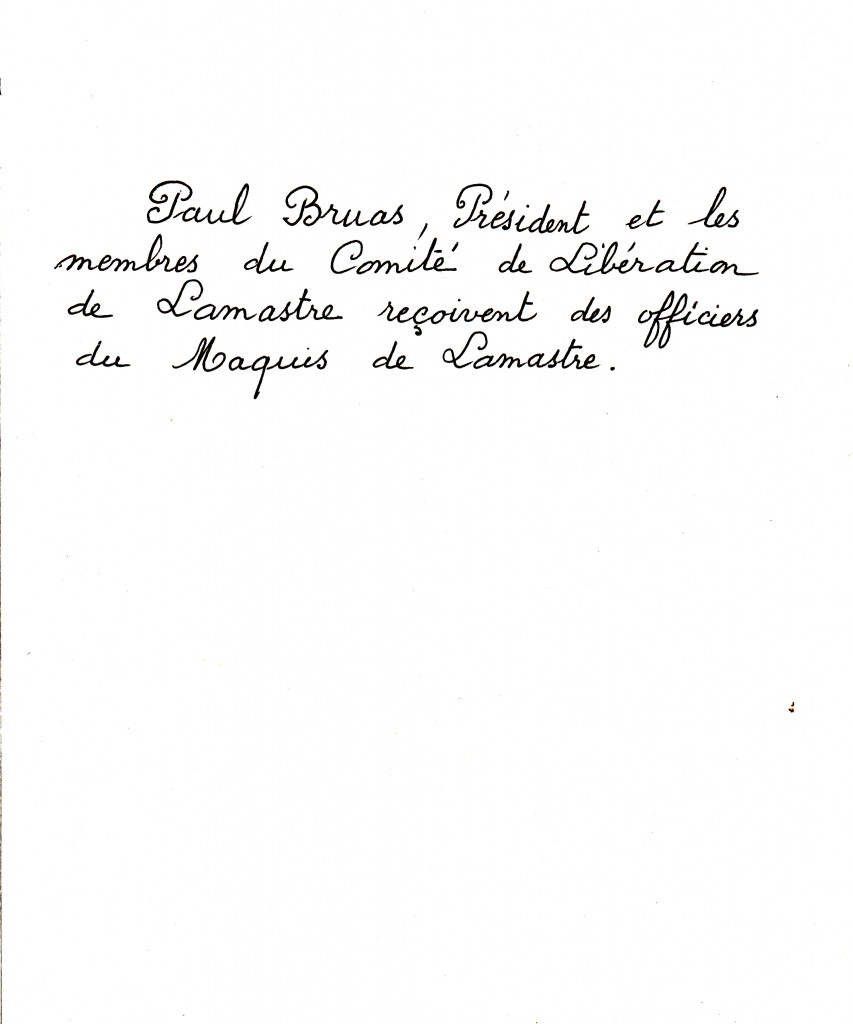 Paul Bruas, Président et les
membres du Comité de Libération
de Lamastre reçoivent des officiers
du Maquis de Lamastre.